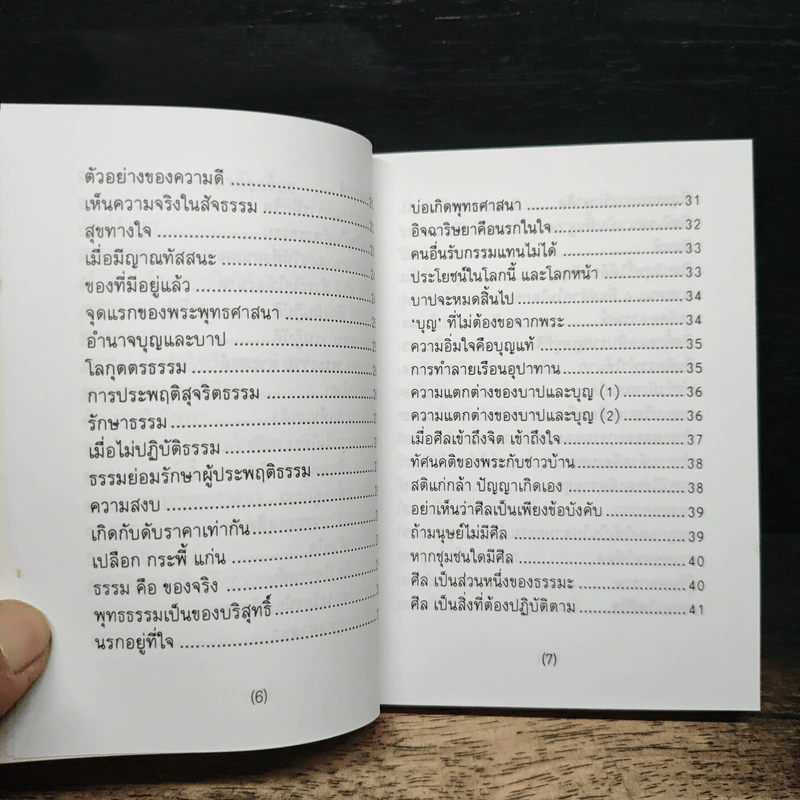 ตัวอย่างของความดี
เห็นความจริงในสัจธรรม
สุขทางใจ
เมื่อมีญาณทัสสนะ
ของที่มีอยู่แล้ว
จุดแรกของพระพุทธศาสนา
อำนาจบุญและบาป
โลกุตตรธรรม
การประพฤติสุจริตธรรม
รักษาธรรม
เมื่อไม่ปฏิบัติธรรม
ธรรมย่อมรักษาผู้ประพฤติธรรม
ความสงบ
เกิดกับดับราคาเท่ากัน
เปลือก กระพี้ แก่น
ธรรม คือ ของจริง
พุทธธรรมเป็นของบริสุทธิ์
นรกอยู่ที่ใจ
(6)
บ่อเกิดพุทธศาสนา 31
อิจฉาริษยาคือนรกในใจ 32
คนอื่นรับกรรมแทนไม่ได้ 33
ประโยชน์ในโลกนี้ และโลกหน้า 33
บาปจะหมดสิ้นไป 34
‘บุญ’ ที่ไม่ต้องขอจากพระ 34
ความอิ่มใจคือบุญแท้ 35
การทำลายเรือนอุปาทาน 35
ความแตกต่างของบาปและบุญ (1) 36
ความแตกต่างของบาปและบุญ (2) 36
เมื่อศีลเข้าถึงจิต เข้าถึงใจ 37
ทัศนคติของพระกับชาวบ้าน 38
สติแก่กล้า ปัญญาเกิดเอง 38
อย่าเห็นว่าศีลเป็นเพียงข้อบังคับ 39
ถ้ามนุษย์ไม่มีศีล 39
หากชุมชนใดมีศีล 40
ศีล เป็นส่วนหนึ่งของธรรมะ 40
ศีล เป็นสิ่งที่ต้องปฏิบัติตาม 41
(7)